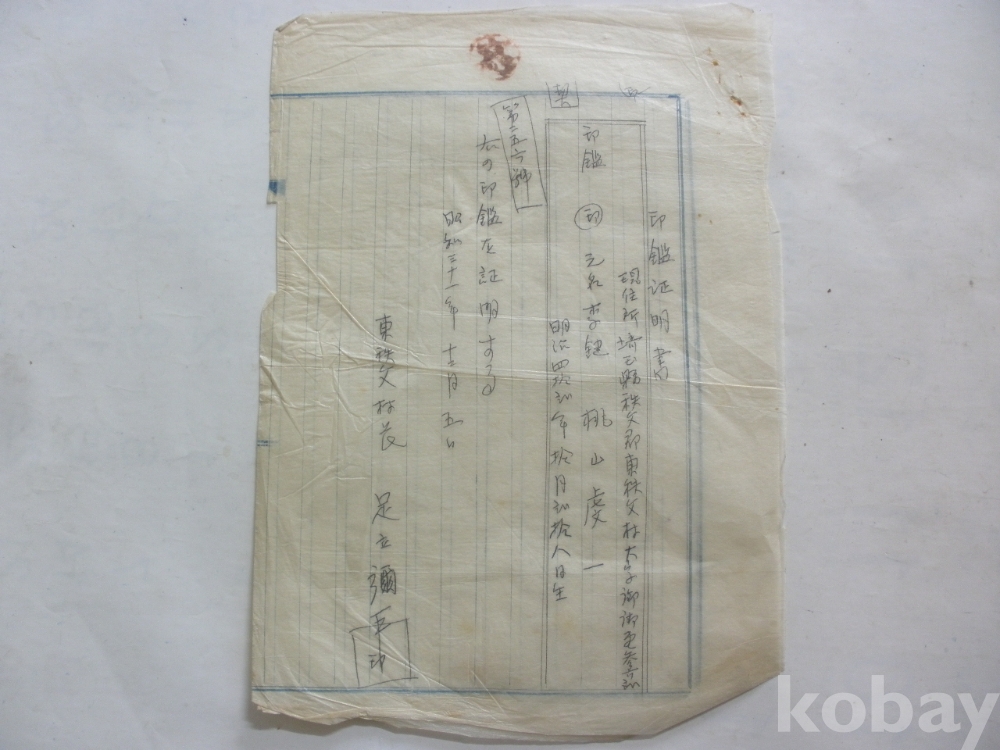 印鑑証明書
現住所埼玉縣秩父郡東秩父村大字御堂参
印鑑 印 元名李 桃山慶一
明治四拾弐年拾月弐拾八日生
契
第二五六號
右の印鑑を証明する
昭和三十一年十二月五日
東秩父村長 足立彌 印
kobay